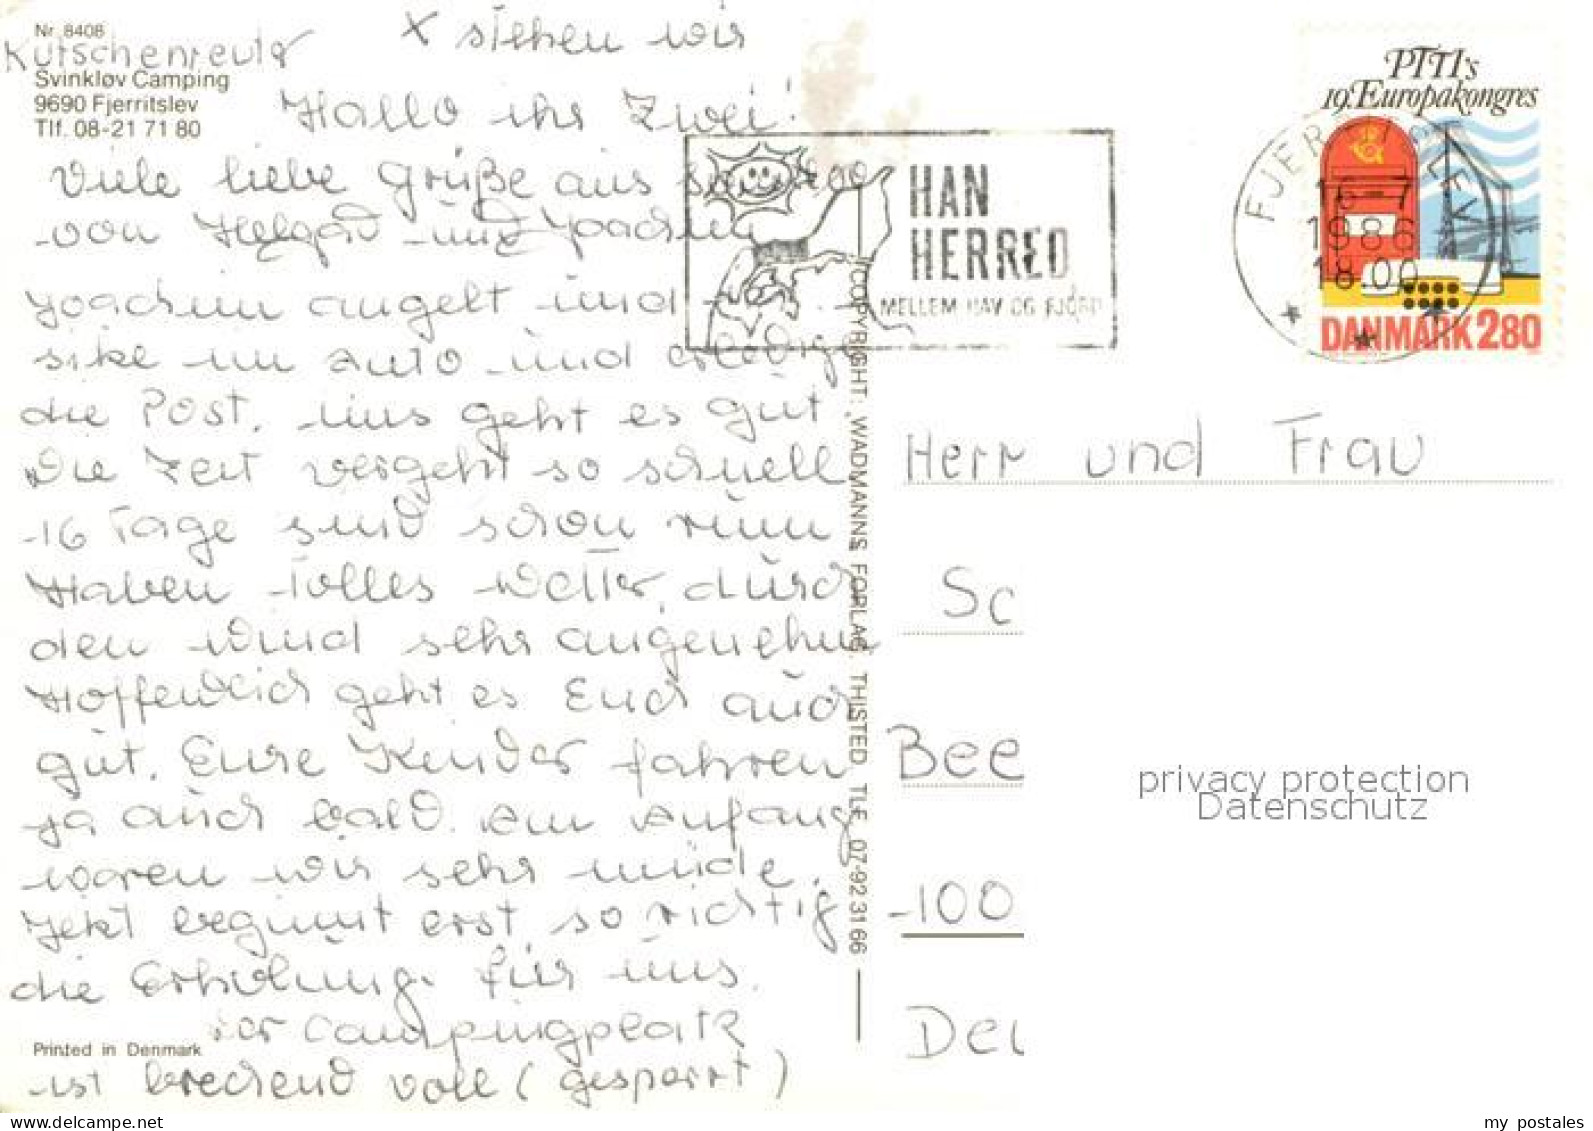 Nr. 8408
Kutschenreuter
Svinkløv Camping
9690 Fjerritslev
Tlf. 08-21 71 80
X stehen wir
Hallo ihr Zwei!
Viele liebe Grüße aus
von Helga und Joachim
Joachim angelt und
im Auto und erledige
die Post. Uns geht es gut
Die Zeit vergeht so schnell
16 Tage sind schon rum
Haben tolles Wetter, durch
den Wind sehr angenehm
Hoffentlich geht es Euch auch
gut. Eure Kinder fahren
ja auch bald. Am Anfang
waren wir sehr müde.
Jetzt beginnt erst so richtig
die Erholung für uns.
Der Campingplatz
ist brechend voll (gesperrt)
Printed in Denmark
COPYRIGHT: WADMANNS FORLAG, THISTED, TLF. 07-92 31 66
HAN
HERRED
MELLEM HAV OG FJORD
FJERRITSLEV
16-7
1986
18.00
PTTI's
19. Europakongres
DANMARK 280
Herr und Frau
Sc
Bee
100
Deu
privacy protection
Datenschutz
my postales